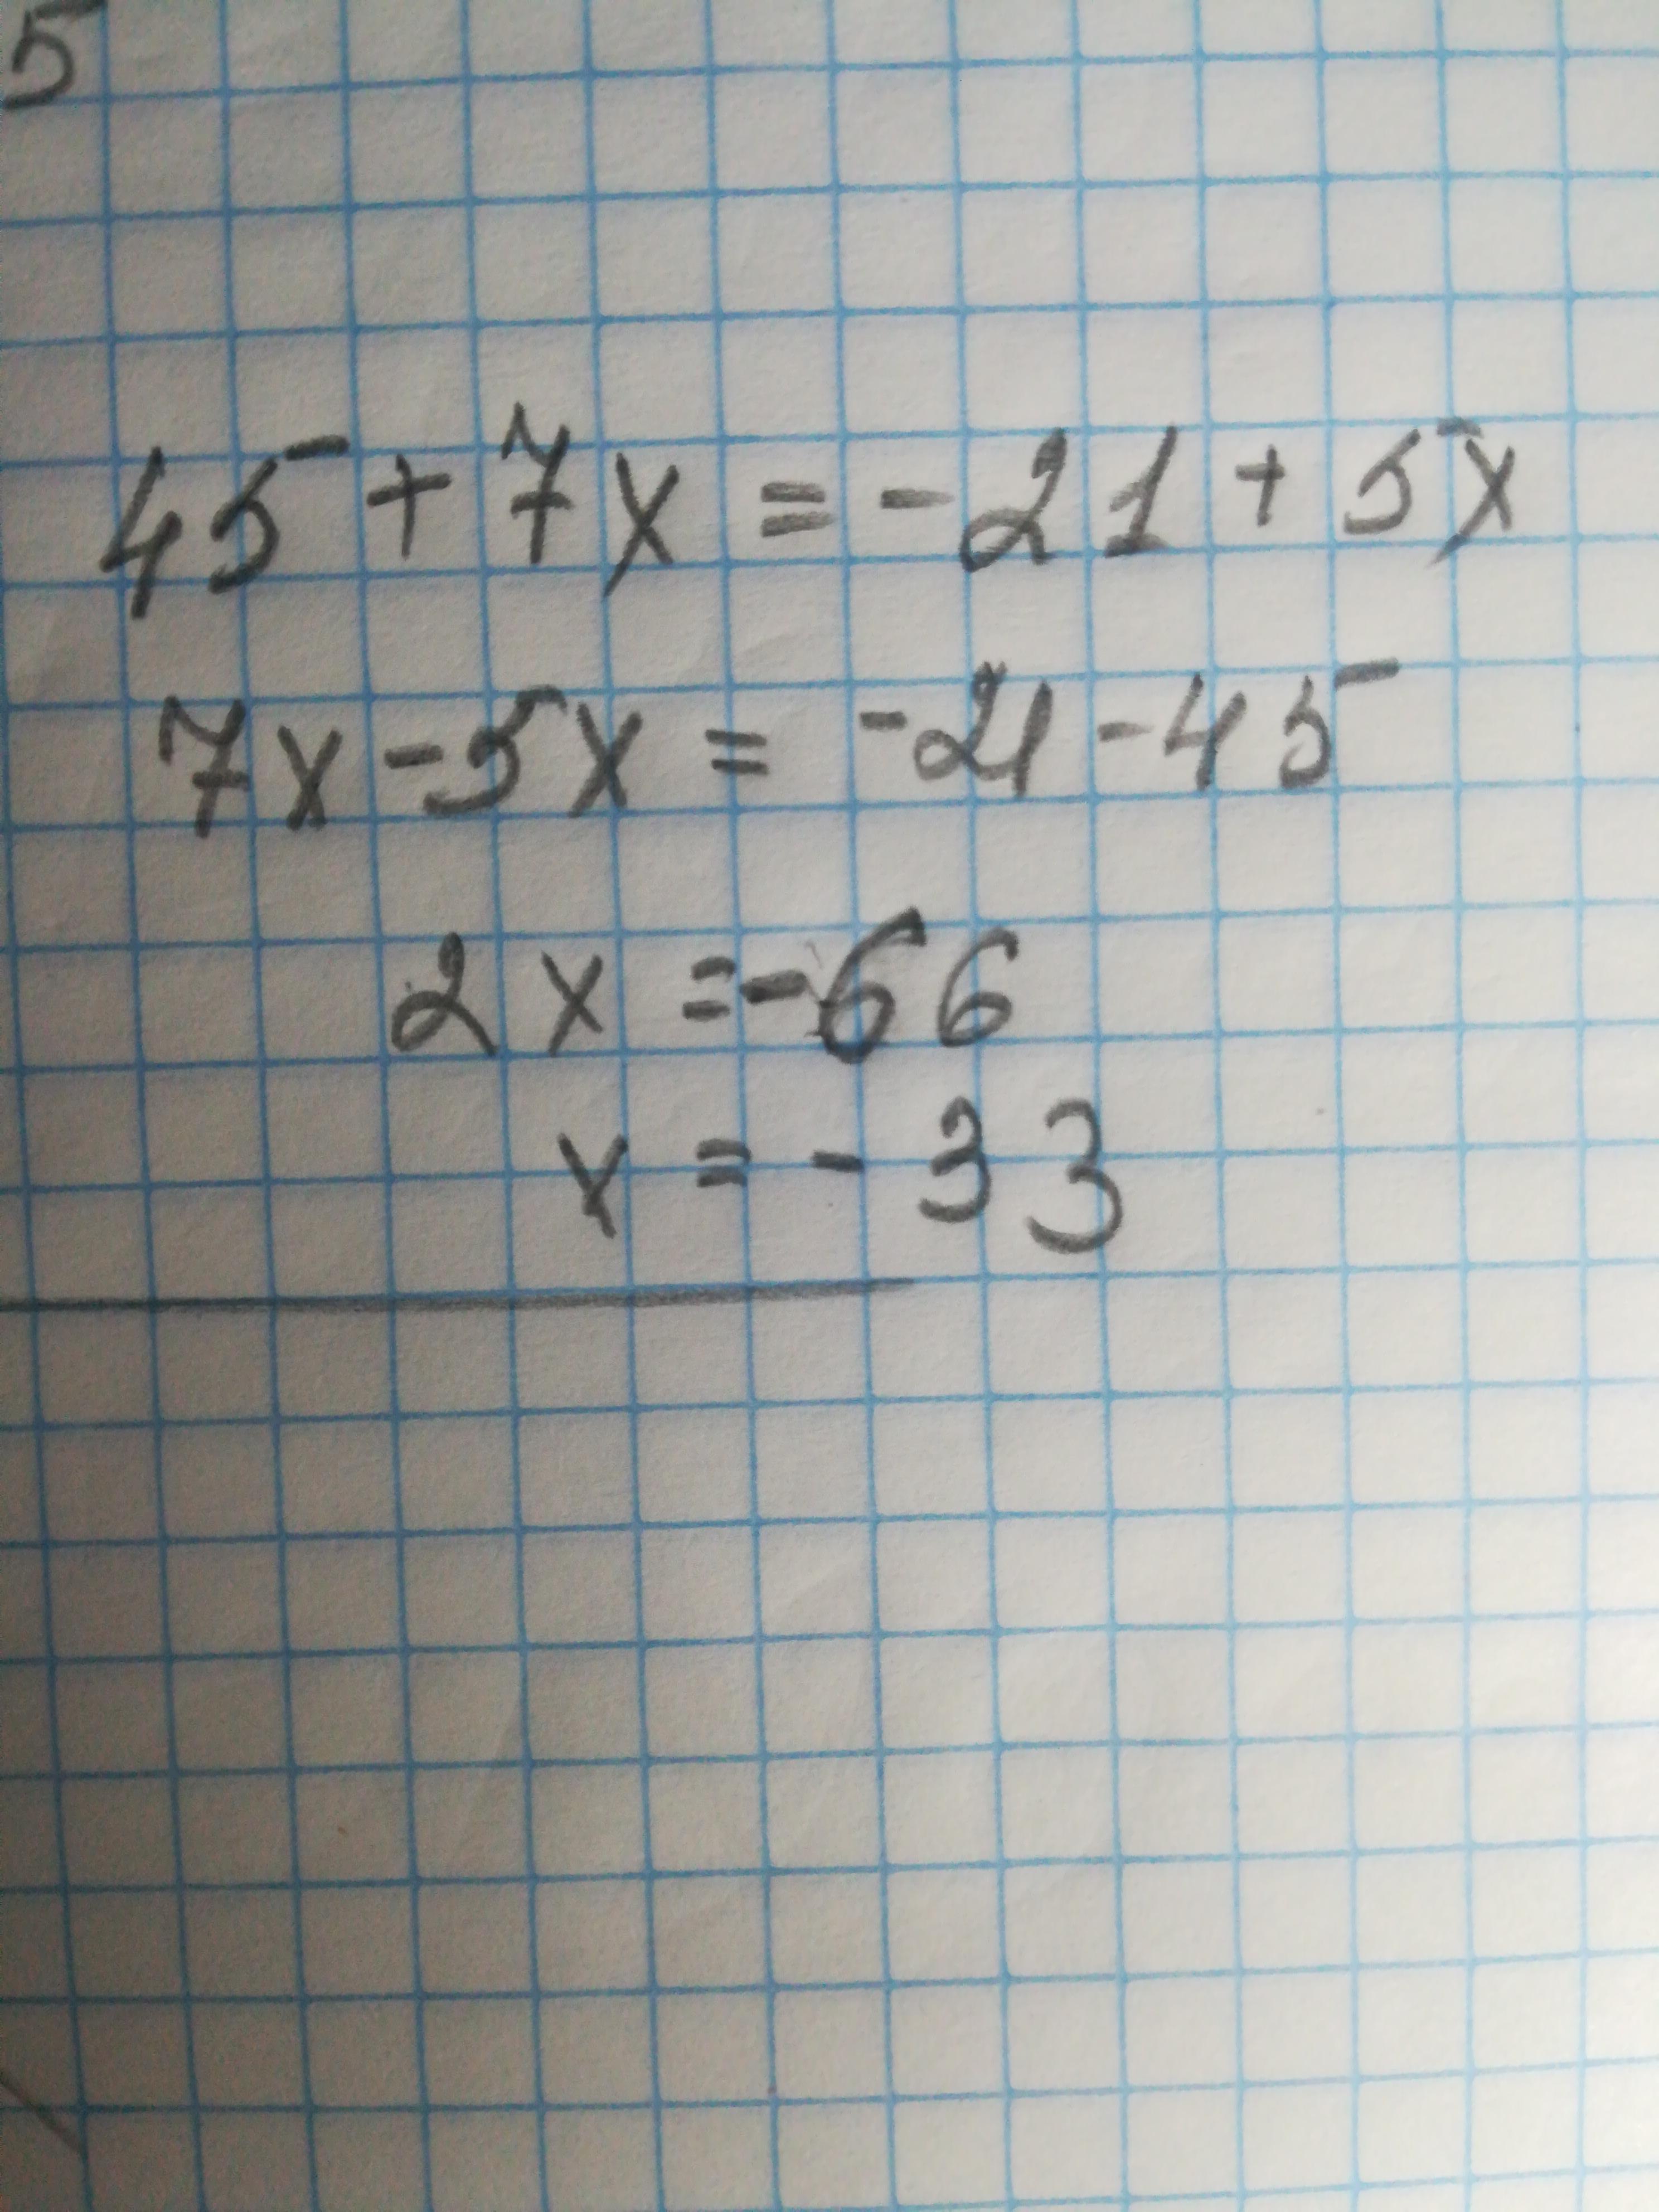 5
45+7x=-21+5x
7x-5x=-21-45
2x=-66
x=-33